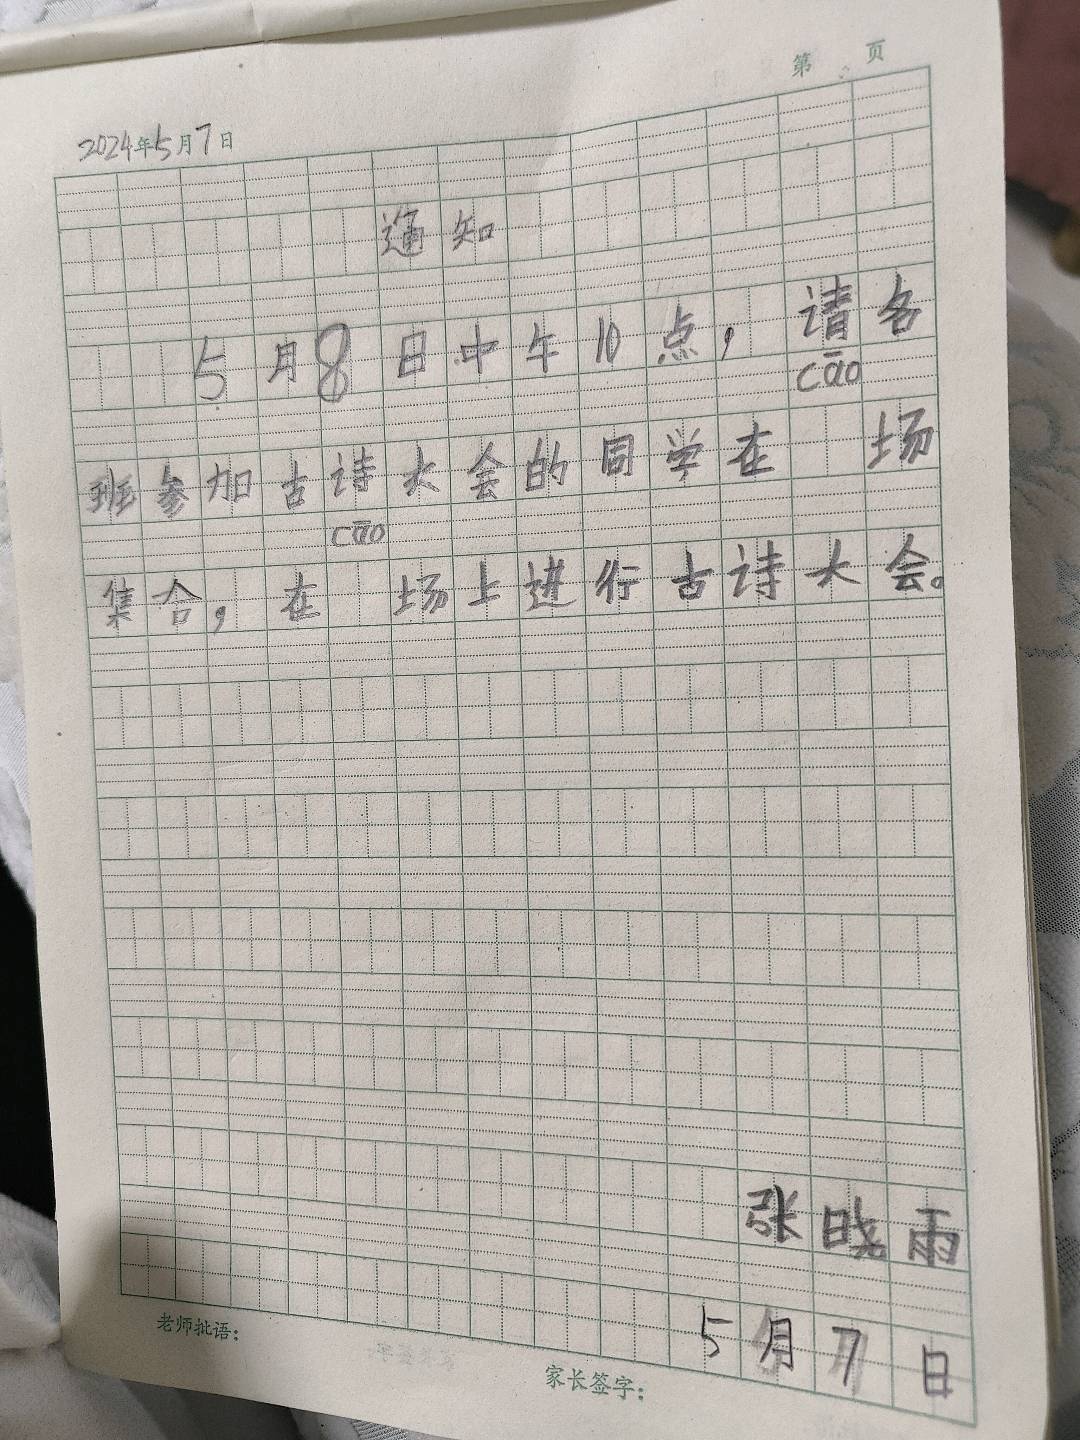 第 页
2024年5月7日
通知
5月8日中午10点，请各
cāo
班参加古诗大会的同学在 场
cāo
集合，在 场上进行古诗大会。
张晓雨
5月7日
老师批语：
家长签字：